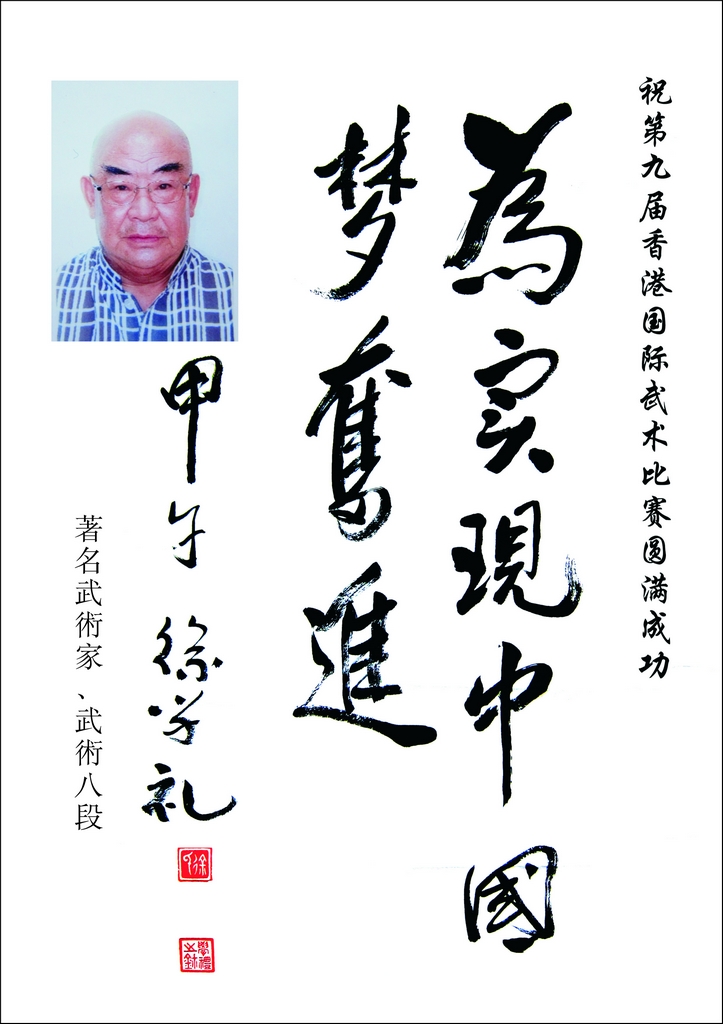 祝第九届香港国际武术比赛圆满成功
為实現中國
梦奮進
甲午 徐学礼
著名武術家、武術八段